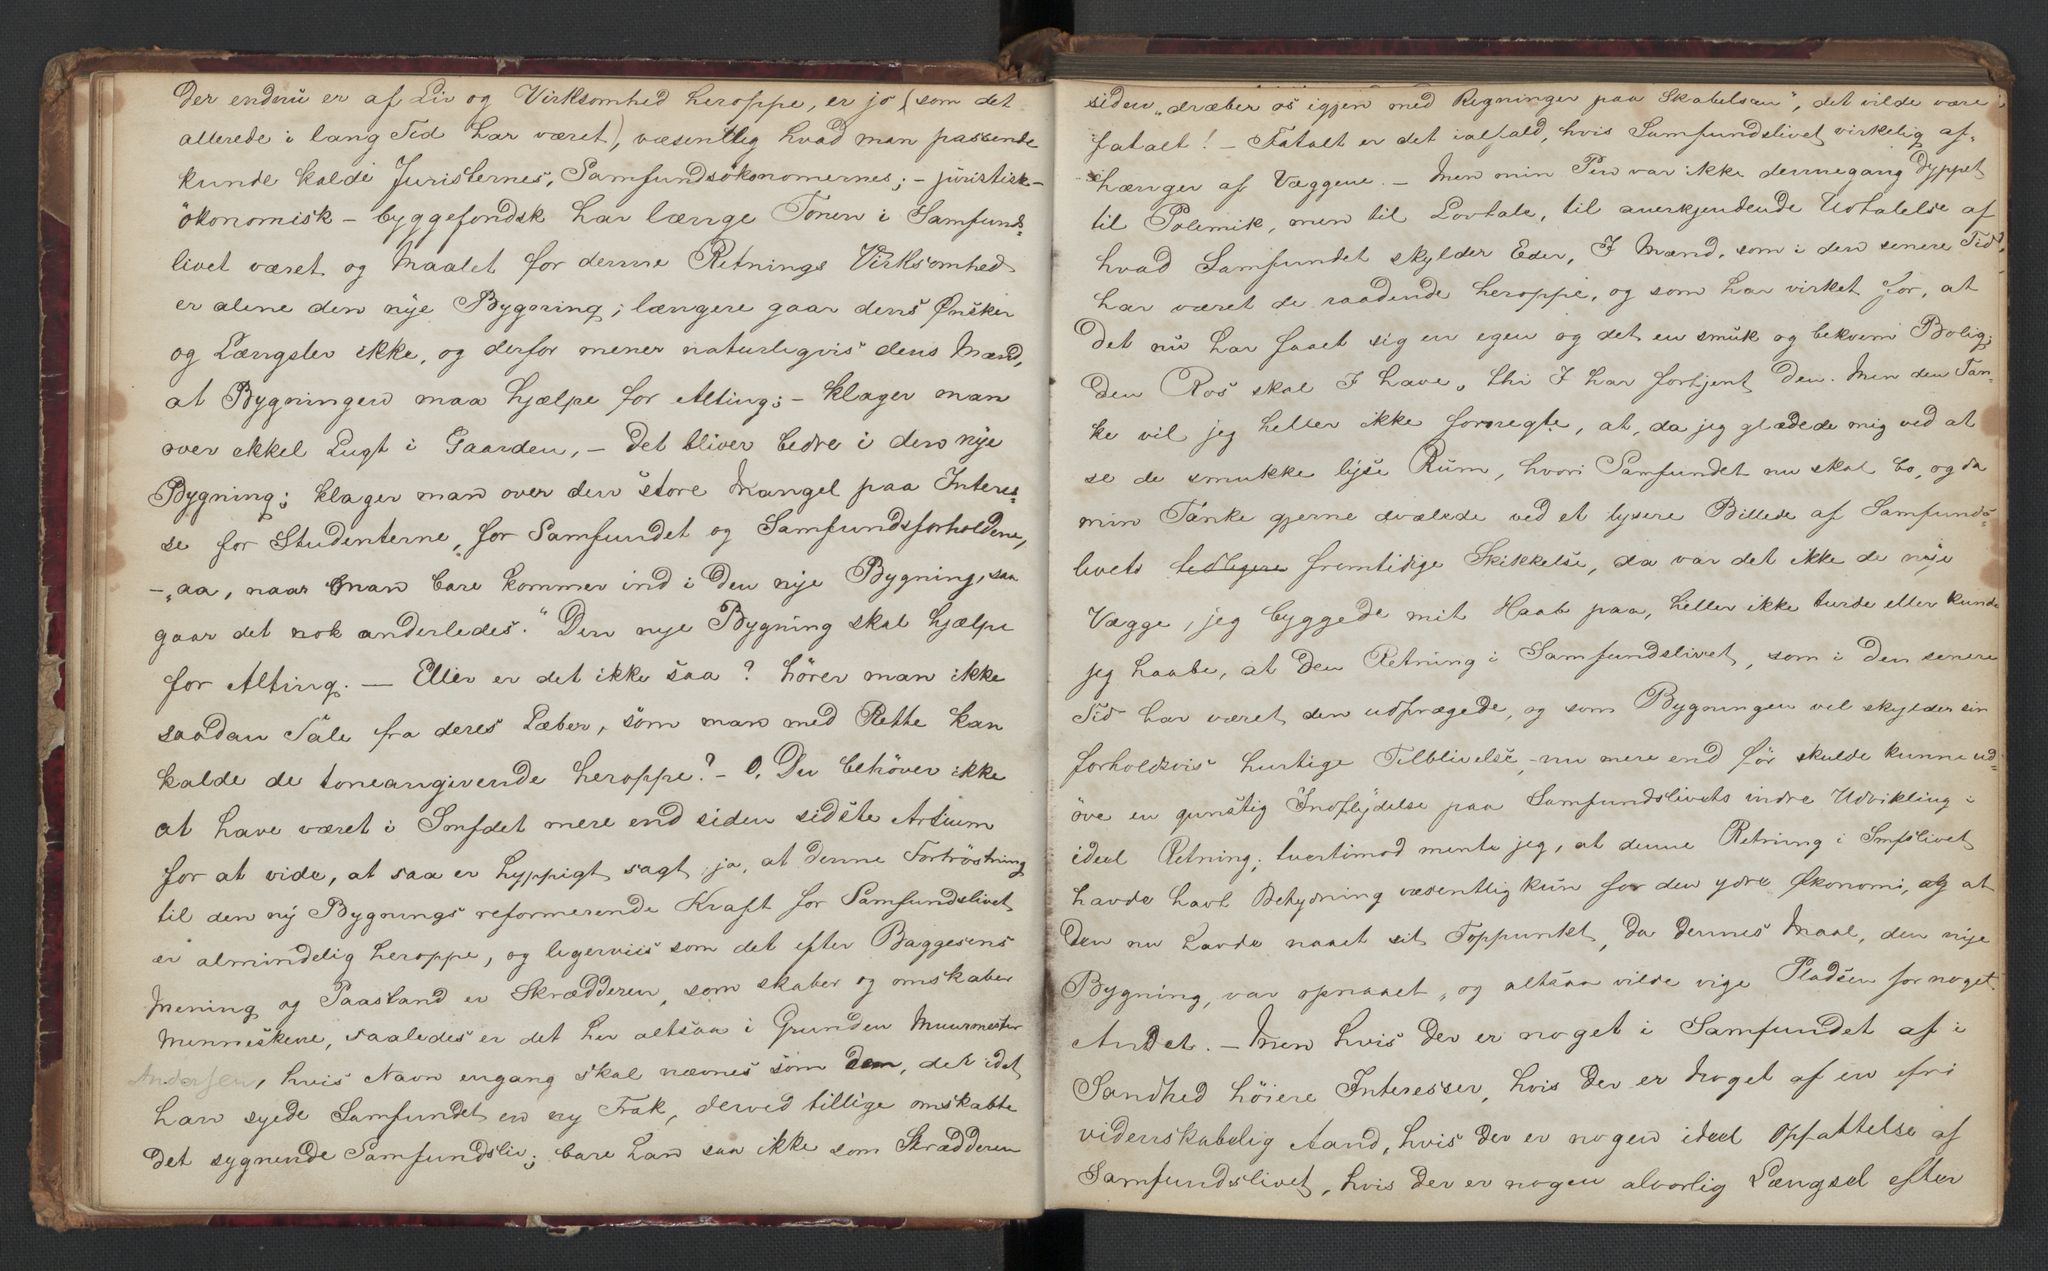 der endnu er af Liv og Virksomhed heroppe, er jo (som det
allerede i lang Tid har været), væsentlig hvad man passende
kunde kalde Juristernes, Samfundsökonomernes; – juristisk-
ökonomisk – byggefondsk har længe Tonen i Samfunds-
livet været og Maalet for denne Retnings Virksomhed
er alene den nye Bygning; længere gaar dens Ønsker
og Længsler ikke, og derfor mener naturligvis dens Mænd,
at Bygningen maa hjælpe for Alting; – klager man
over ekkel Lugt i Gaarden, – det bliver bedre i den nye
Bygning; klager man over den store Mangel paa Interes-
se for Studenterne, for Samfundet og Samfundsforholdene,
– „aa, naar man bare kommer ind i den nye Bygning, saa
gaar det nok anderledes.“ Den nye Bygning skal hjælpe
for Alting. — Eller er det ikke saa? hører man ikke
saadan Tale fra deres Læber, som man med Rette kan
kalde de toneangivende heroppe? – O, Du behöver ikke
at have været i Smfdet mere end siden sidste Artium
for at vide, at saa er hyppigt sagt, ja, at denne Fortröstning
til den ny Bygnings reformerende Kraft for Samfundslivet
er almindelig heroppe, og ligerviis som det efter Baggesens
Mening og Paastand er Skrædderen, som skaber og omskaber
Menneskene, saaledes er det her altsaa i Grunden Muurmester
Andersen, hvis Navn engang skal nævnes som den, der idet
han syede Samfundet en ny Frak, derved tillige omskabte
det sygnende Samfundsliv; bare han saa ikke som Skrædderen
siden „dræber os igjen med Regninger paa Skabelsen“, det vilde være
fatalt! – Fatalt er det ialfald, hvis Samfundslivet virkelig af-
hænger af Væggene. – Men min Pen var ikke dennegang dyppet
til Polemik, men til Lovtale, til anerkjendende Udtalelse af
hvad Samfundet skylder Eder, I Mænd, som i den senere Tid
har været de raadende heroppe, og som har virket for, at
det nu har faaet sig en egen og det en smuk og bekvem Bolig;
den Ros skal I have, thi I har fortjent den. Men den Tan-
ke vil jeg heller ikke fornegte, at, da jeg glædede mig ved at
se de smukke lyse Rum, hvori Samfundet nu skal bo, og da
min Tanke gjerne dvælede ved et lysere Billede af Samfunds-
livets tidligere fremtidige Skikkelse, da var det ikke de nye
Vægge, jeg byggede mit Haab paa, heller ikke turde eller kunde
jeg haabe, at den Retning i Samfundslivet, som i den senere
Tid har været den udprægede, og som Bygningen vel skylder sin
forholdsvis hurtige Tilblivelse, nu mere end før skulde kunne ud-
öve en gunstig Indflydelse paa Samfundslivets indre Udvikling i
ideel Retning; tvertimod mente jeg, at denne Retning i Smfslivet
havde havt Betydning væsentlig kun for den ydre Økonomi, og at
den nu havde naaet sit Toppunkt, da dennes Maal, den nye
Bygning, var opnaaet, og altsaa vilde vige Pladsen for noget
Andet. – Men hvis der er noget i Samfundet af i
Sandhed höiere Interesser, hvis der er Noget af en fri
videnskabelig Aand, hvis der er nogen ideel Opfattelse af
Samfundslivet, hvis der er nogen alvorlig Længsel efter